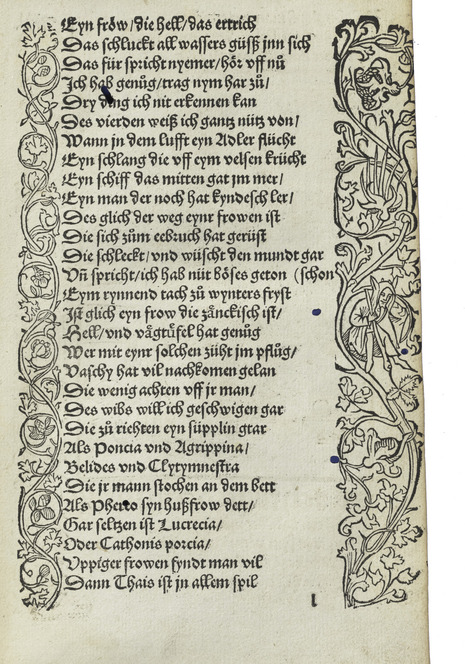 Eyn frow/ die hell/ das ertrich
Das schluckt all wassers güsß jnn sich
Das für spricht nyemer/ hör vff nů
Jch hab genůg/ trag nym har zů/
Dry ding ich nit erkennen kan
Des vierden weiß ich gantz nütz von/
Wann in dem lufft eyn Adler flücht
Eyn schlang die vff eym velsen krücht
Eyn schiff das mitten gat jm mer/
Eyn man der noch hat kyndesch ler/
Des glich der weg eynr frowen ist
Die sich zům eebruch hat gerüst
Die schleckt/ vnd wüscht den mundt gar
Vñ spricht/ ich hab nüt böses geton (schon
Eym rynnend tach zů wynters fryst
Jst glich eyn frow die zänckisch ist/
Hell/ vnd vägtüfel hat genůg
Wer mit eynr solchen züht jm pflůg/
Vaschy hat vil nachkomen gelan
Die wenig achten vff jr man/
Des wibs will ich geschwigen gar
Die zů riehten eyn süpplin gtar
Als Poncia vnd Agrippina/
Belides vnd Clytymnestra
Die jr mann stochen an dem bett
Als syn hußfrow dett/
Gar seltzen ist Lucrecia/
Oder Cathonis porcia/
Vppiger frowen fyndt man vil
Dann Thais ist jn allem spil
l